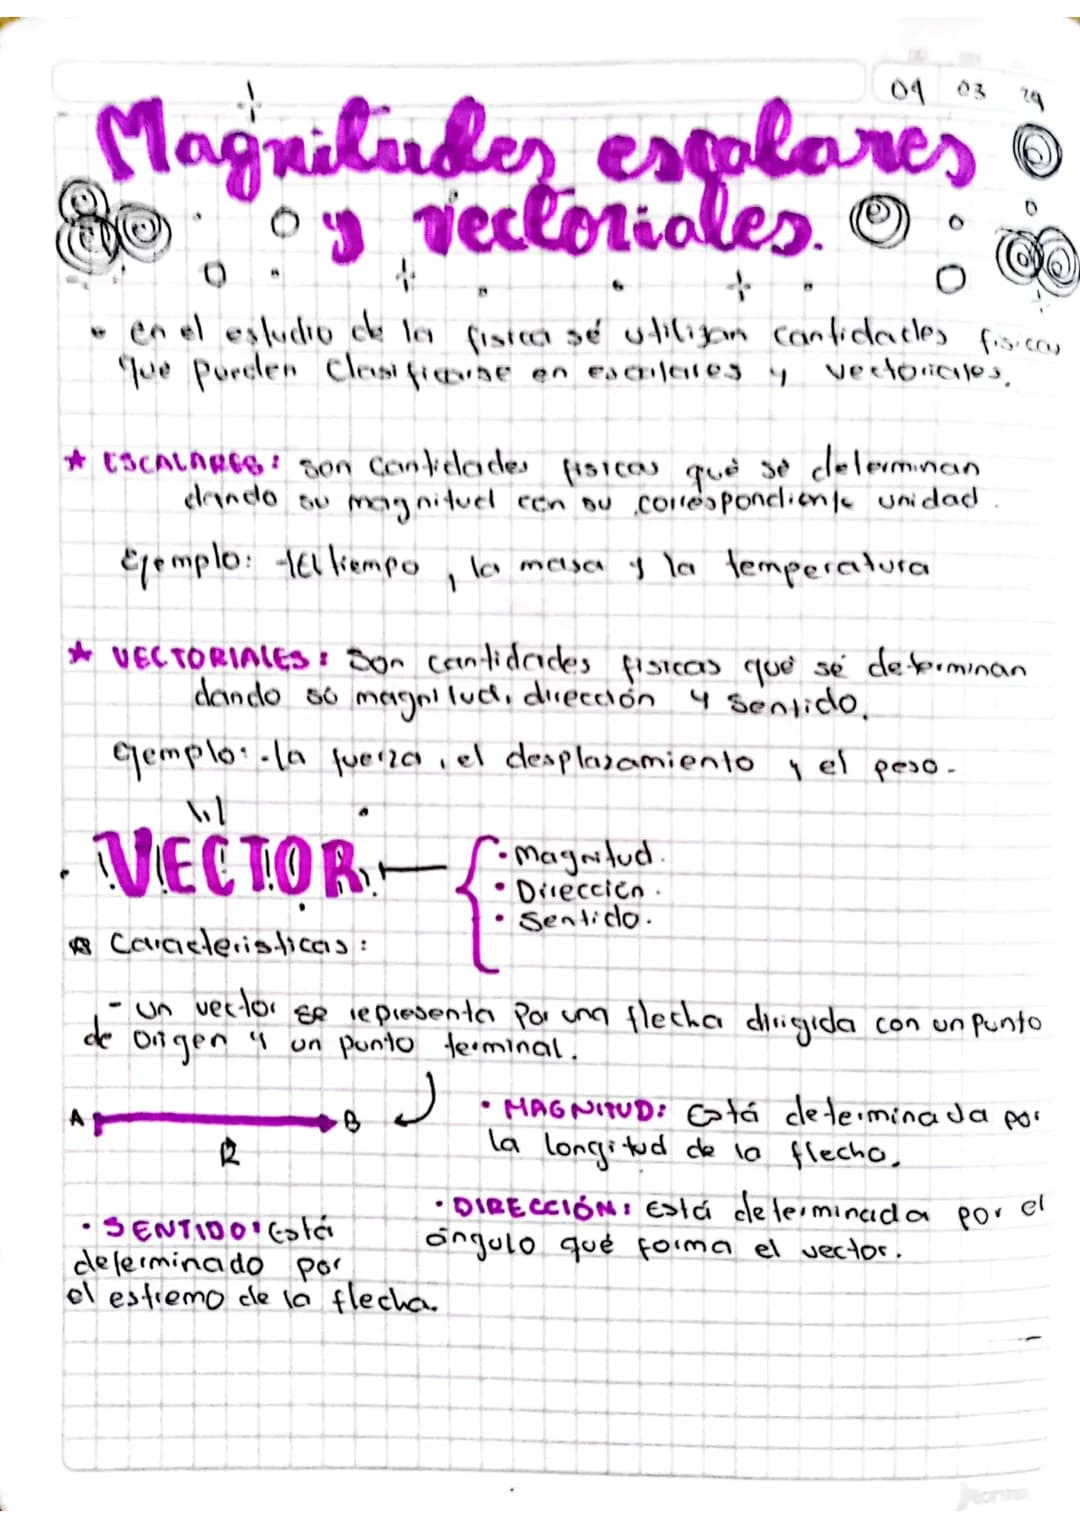 04 03 24
Magnitudes escalares
y vectoriales.
• en el estudio de la fisica sé utilizan cantidades fisicas
que pueden clasificarse en escalares y vectoriales.
★ ESCALARES: son cantidades fisicas qué sé determinan
dando su magnitud con su correspondiente unidad.
Ejemplo: -El tiempo, la masa y la temperatura
★ VECTORIALES: Son cantidades fisicas qué sé determinan
dando su magnitud, dirección y sentido.
Ejemplo: -la fuerza, el desplazamiento y el peso.
VECTOR
• Magnitud.
• Dirección.
• Sentido.
Caracteristicas:
- un vector se representa por una flecha dirigida con un punto
de origen y un punto terminal.
A B
R
• MAGNITUD: Está determinada por
la longitud de la flecha.
• DIRECCIÓN: Está determinada por el
ángulo qué forma el vector.
• SENTIDO: Está
determinado por
el estremo de la flecha.
norma